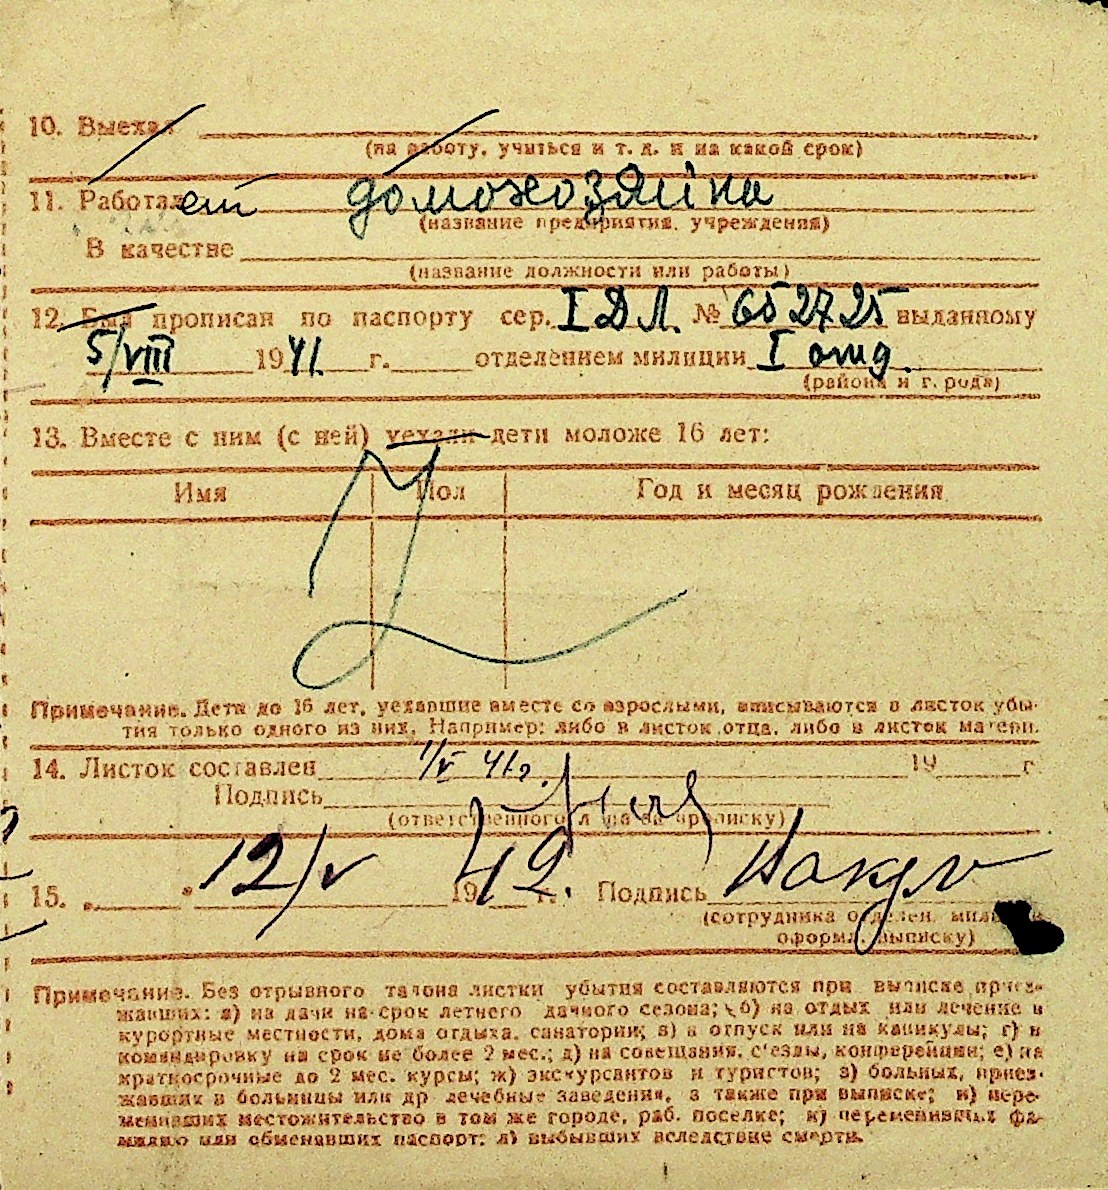 10. Выехал
(на работу, учиться и т. д. и на какой срок)
11. Работает домохозяйка
(название предприятия, учреждения)
В качестве
(название должности или работы)
12. Был прописан по паспорту сер. I ДЛ. № 652725 выданному
5/VIII 1941 г. отделением милиции I отд.
(района и города)
13. Вместе с ним (с ней) уехали дети моложе 16 лет:
Имя Пол Год и месяц рождения
Примечание. Дети до 16 лет, уехавшие вместе со взрослыми, вписываются в листок убы-
тия только одного из них. Например: либо в листок отца, либо в листок матери.
14. Листок составлен 1/V 41г. 19 г
Подпись
(ответственного лица за прописку)
15. „ " 12/V 1942 г. Подпись
(сотрудника отделен. милиции
оформл. выписку)
Примечание. Без отрывного талона листки убытия составляются при выписке приез-
жавших: а) на дачи на срок летнего дачного сезона; б) на отдых или лечение в
курортные местности, дома отдыха, санатории; в) в отпуск или на каникулы; г) в
командировку на срок не более 2 мес.; д) на совещания, съезды, конференции; е) на
краткосрочные до 2 мес. курсы; ж) экскурсантов и туристов; з) больных, приез-
жавших в больницы или др лечебные заведения, а также при выписке; и) пере-
менивших местожительство в том же городе, раб. поселке; к) переменивших фа-
милию или обменявших паспорт; л) выбывших вследствие смерти.